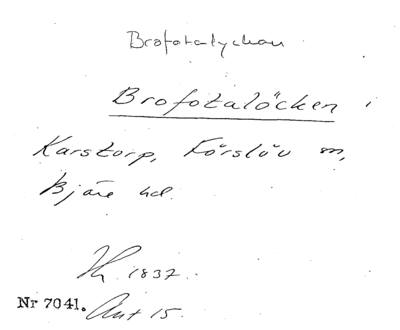 Brofotalyckan
Brofotalöcken i
Karstorp, Förslöv sn,
Bjäre hd.
Lh 1837.
Nr 7041. Ant 15.